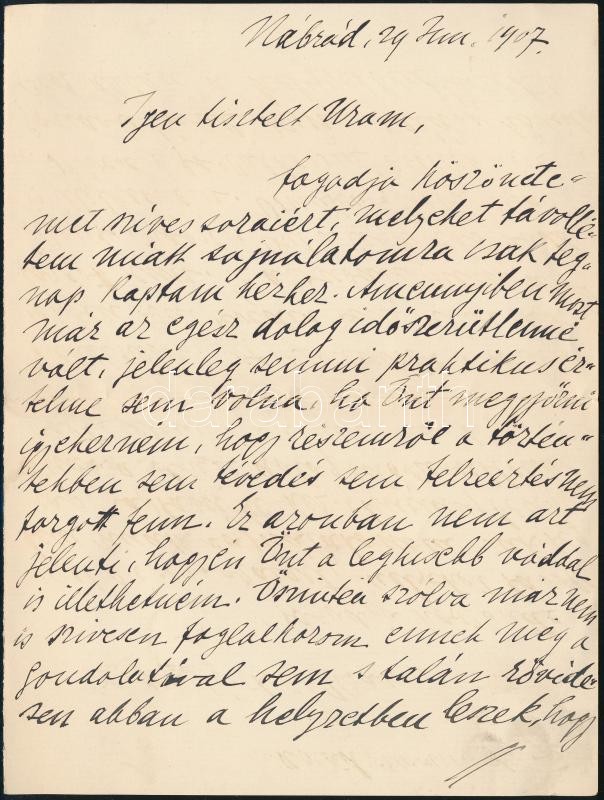 Nábrád, 29 Jun. 1907.
Igen tisztelt Uram,
fogadja köszönete-
met szives soraiért, melyeket távollé-
tem miatt sajnálatomra csak teg-
nap kaptam kézhez. Amennyiben most
már az egész dolog időszerűtlenné
vált, jelenleg semmi praktikus ér-
telme sem volna, ha Önt meggyőzni
igyekezném, hogy részemről a történ-
tekben sem tévedés sem félreértés nem
forgott fenn. Ez azonban nem azt
jelenti, hogy én Önt a legkisebb váddal
is illethetném. Őszintén szólva már nem
is szivesen foglalkozom ennek még a
gondolatával sem s talán rövide-
sen abban a helyzetben leszek, hogy
darabanth